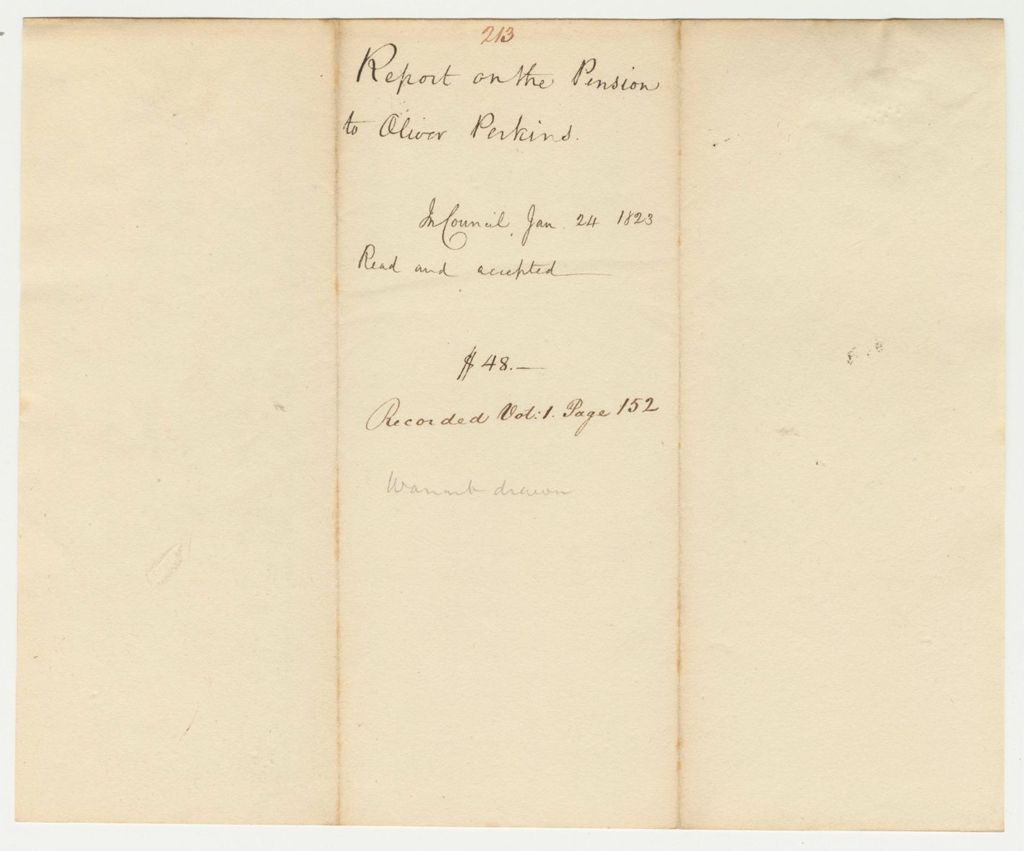 213
Report on the Pension
to Oliver Perkins.
In Council, Jan. 24 1823
Read and accepted
$48.—
Recorded Vol: 1. Page 152
Warrant drawn